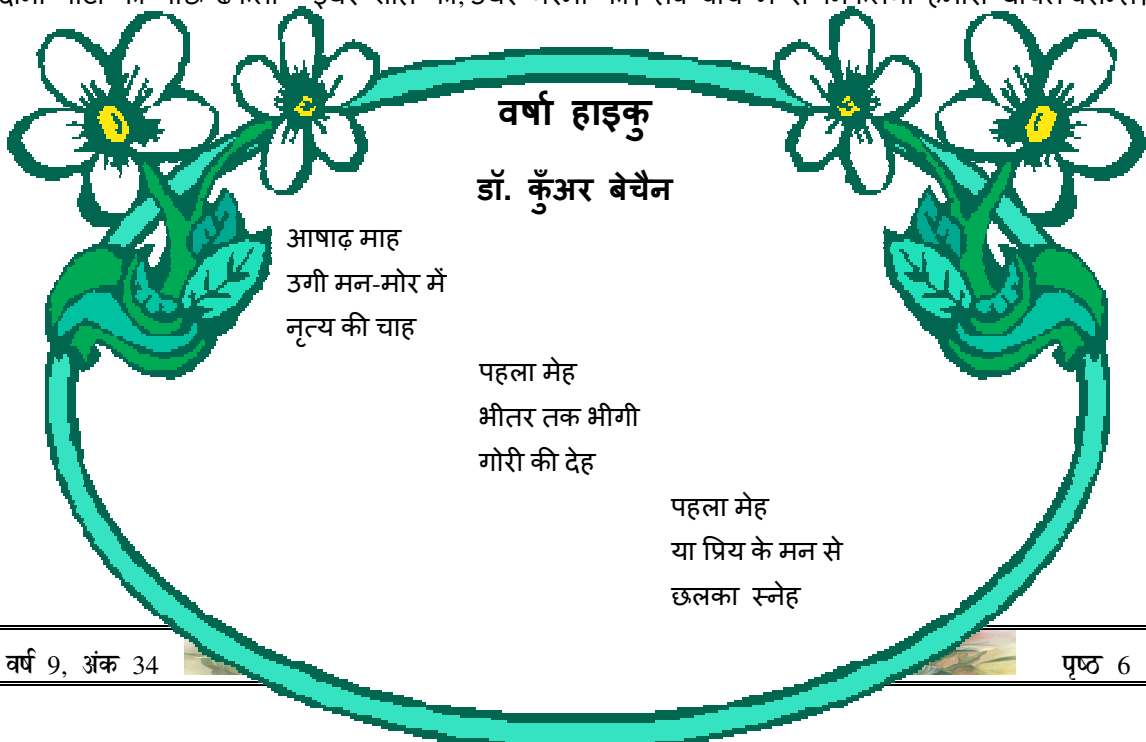 वर्षा हाइकु
डॉ. कुँअर बेचैन
आषाढ़ माह
उगी मन-मोर में
नृत्य की चाह
पहला मेह
भीतर तक भीगी
गोरी की देह
पहला मेह
या प्रिय के मन से
छलका स्नेह
वर्ष 9, अंक 34
पृष्ठ 6